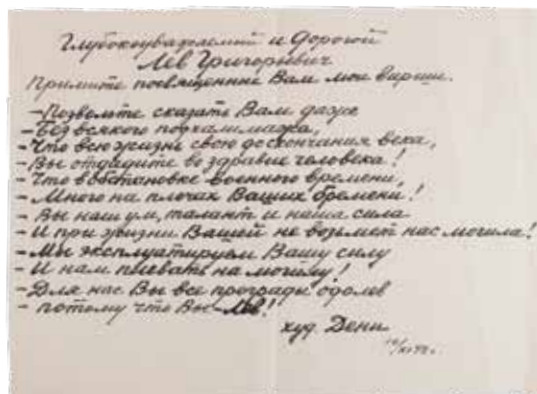 Глубокоуважаемый и Дорогой
Лев Григорьевич
Примите посвященные Вам мои вирши.
– Позвольте сказать Вам даже
– Без всякого подхалимажа,
– Что всю жизнь свою до скончания века,
– Вы отдадите во здравие человека!
– Что в обстановке военного времени,
– Много на плечах Ваших бремени!
– Вы наш ум, талант и наша сила
– И при жизни Вашей не возьмет нас могила!
– Мы эксплуатируем Вашу силу
– И нам плевать на могилу!
– Для нас Вы все преграды одолев
– потому что Вы – Лев!
худ. Дени